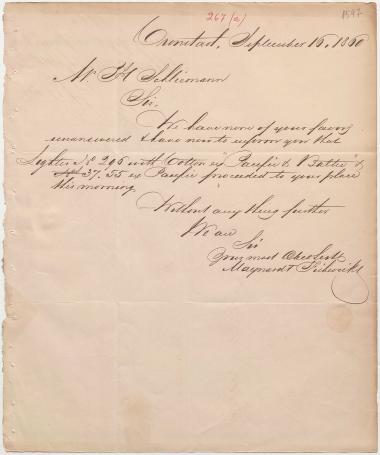 267 (a)
1597
Cronstadt, September 16, 1860
Mr. H Schliemann
Sir,
We have none of your favors
unanswered & have now to inform you that
Lighter No 206 with Cotton ex "Pacific & Baltic" &
37/55 ex Pacific proceeded to your place
this morning
Without any thing further
We are
Sir
Your most Obed Servts
Maynard &